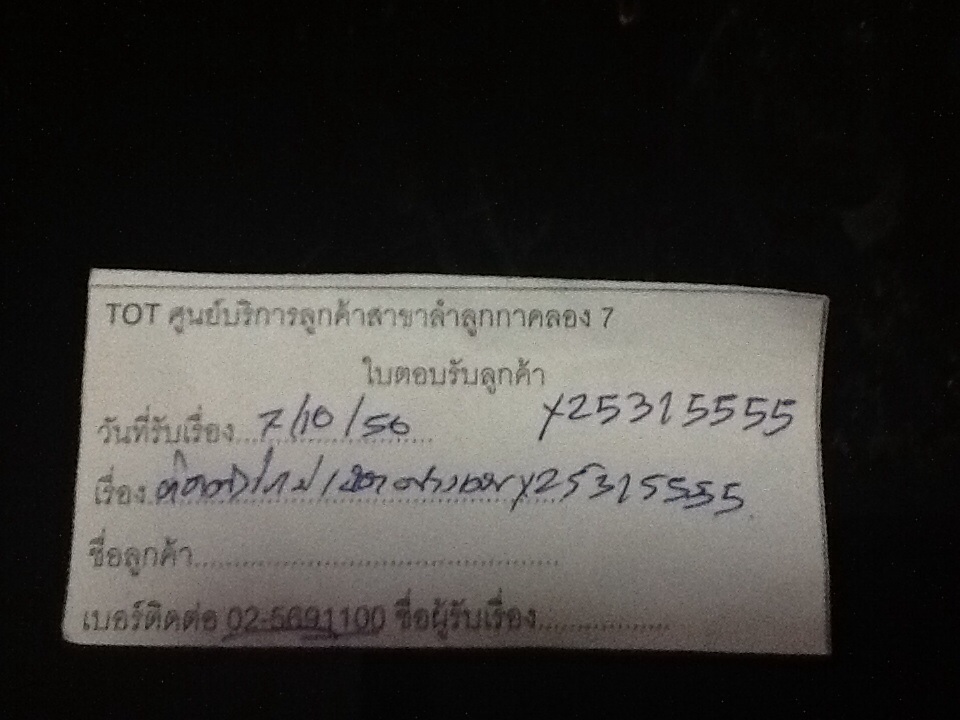 TOT ศูนย์บริการลูกค้าสาขาลำลูกกาคลอง 7
ใบตอบรับลูกค้า
วันที่รับเรื่อง 7/10/56 Y25315555
เรื่อง Y25315555
ชื่อลูกค้า
เบอร์ติดต่อ 02-5691100 ชื่อผู้รับเรื่อง